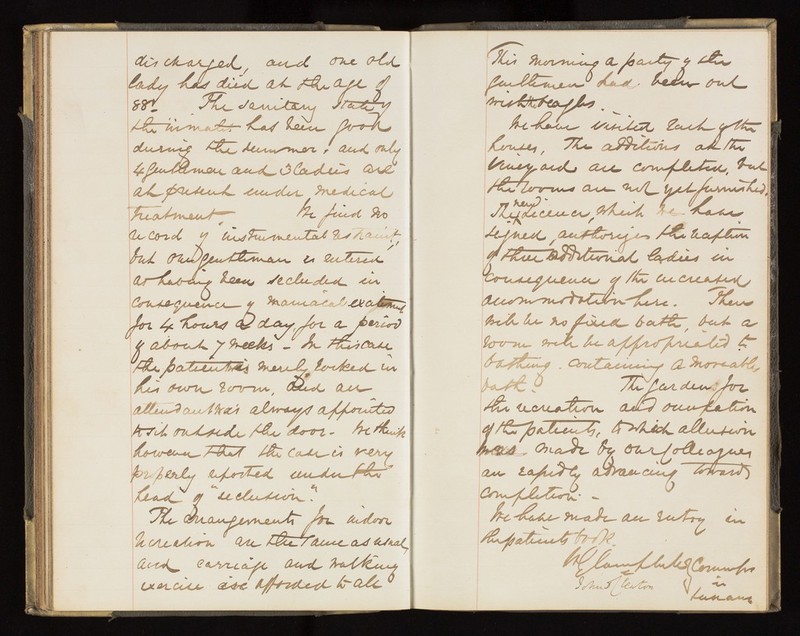 discharged, and one old
lady has died at the age of
88. The sanitary state of
the inmates has been good
during the summer, and only
4 gentlemen and 3 ladies are
at present under medical
treatment. We find no
record of instrumental restraint,
but one gentleman is entered
as having been secluded in
consequence of maniacal excitement
for 4 hours a day for a period
of about 7 weeks - In this case
the patient is merely locked in
his own room, and an
attendant was always appointed
to sit outside the door. We think
however that the case is very
properly reported under the
head of "seclusion".
The arrangements for indoor
recreation are the same as usual,
and carriage and walking
exercise are afforded to all
This morning a party of the
gentlemen had been out
with beagles.
We have visited each of the
houses, The additions at the
Vineyard are completed, but
the rooms are not yet furnished.
The new licence, which we have
signed, authorizes the reception
of three additional ladies in
consequence of the increased
accommodation here. There
will be no fixed bath, but a
room will be appropriated to
bathing, containing a moveable
bath. The gardens for
the recreation and occupation
of the patients, to which allusion
was made by our colleagues
are rapidly advancing towards
completion -
We have made an entry in
the patients book
Campbell Commrs
John Cleaton in
Lunacy